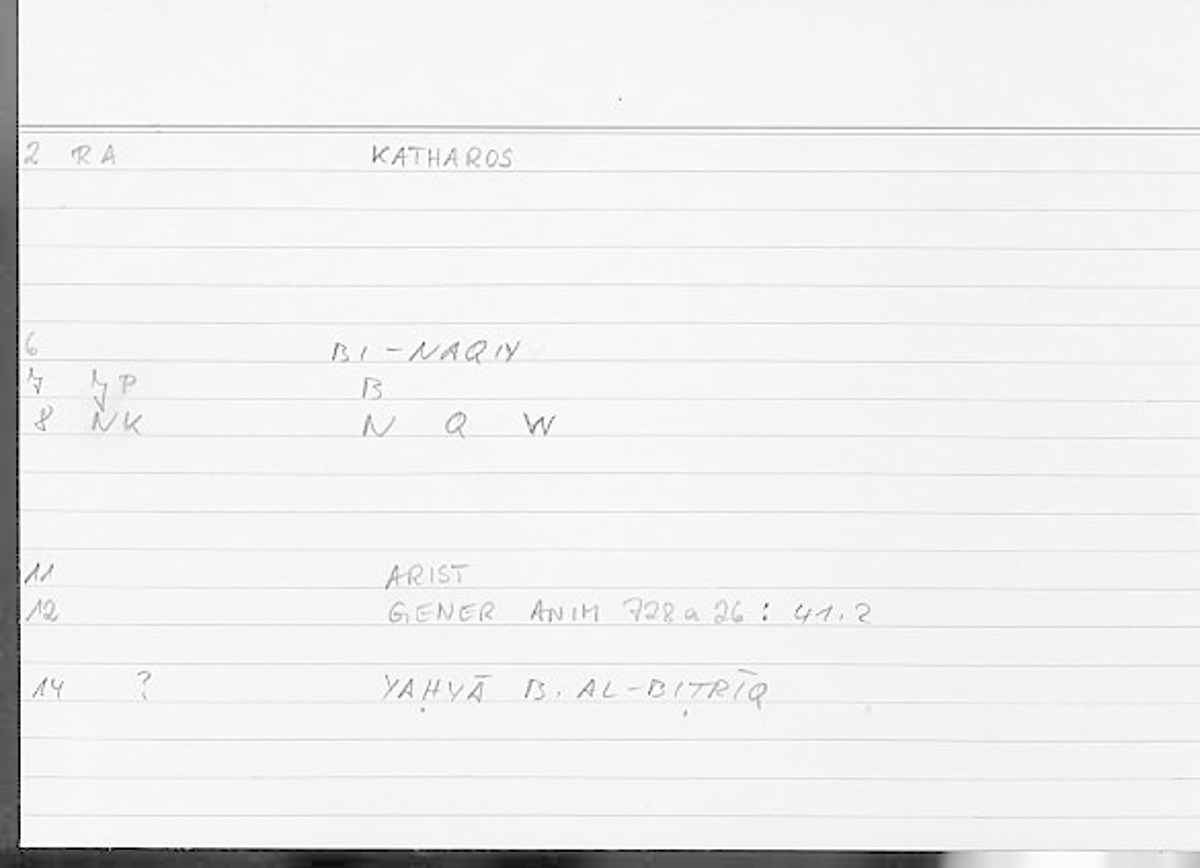 2 RA KATHAROS
6 BI-NAQIY
7 JP B
8 NK N Q W
11 ARIST
12 GENER ANIM 728a26: 41.2
14 ? YAḤYĀ B. AL-BIṬRĪQ